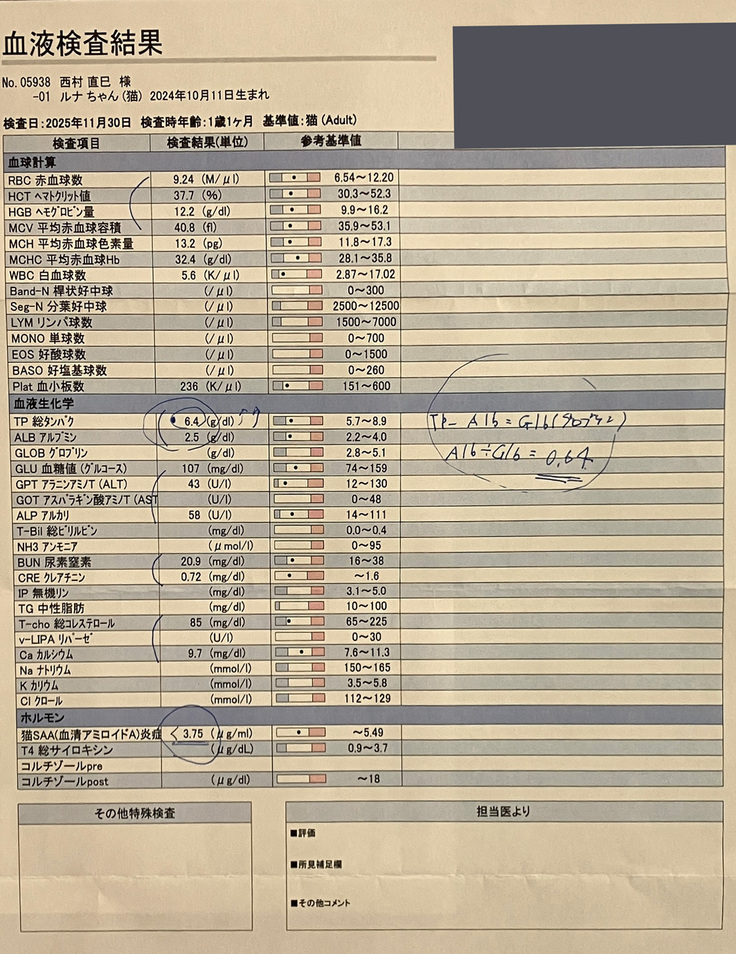 血液検査結果
No.05938 西村 直巳 様
-01 ルナちゃん(猫) 2024年10月11日生まれ
検査日:2025年11月30日 検査時年齢:1歳1ヶ月 基準値:猫(Adult)
検査項目 検査結果(単位) 参考基準値
血球計算
RBC 赤血球数 9.24 (M/μl) 6.54~12.20
HCT ヘマトクリット値 37.7 (%) 30.3~52.3
HGB ヘモグロビン量 12.2 (g/dl) 9.9~16.2
MCV 平均赤血球容積 40.8 (fl) 35.9~53.1
MCH 平均赤血球色素量 13.2 (pg) 11.8~17.3
MCHC 平均赤血球Hb 32.4 (g/dl) 28.1~35.8
WBC 白血球数 5.6 (K/μl) 2.87~17.02
Band-N 桿状好中球 (/μl) 0~300
Seg-N 分葉好中球 (/μl) 2500~12500
LYM リンパ球数 (/μl) 1500~7000
MONO 単球数 (/μl) 0~700
EOS 好酸球数 (/μl) 0~1500
BASO 好塩基球数 (/μl) 0~260
Plat 血小板数 236 (K/μl) 151~600
血液生化学
TP 総タンパク 6.4 (g/dl) 5.7~8.9
TP - Alb = Glb
ALB アルブミン 2.5 (g/dl) 2.2~4.0
GLOB グロブリン (g/dl) 2.8~5.1
Alb÷Glb = 0.64
GLU 血糖値(グルコース) 107 (mg/dl) 74~159
GPT アラニンアミノT(ALT) 43 (U/l) 12~130
GOT アスパラギン酸アミノT(AST (U/l) 0~48
ALP アルカリ 58 (U/l) 14~111
T-Bil 総ビリルビン (mg/dl) 0.0~0.4
NH3 アンモニア (μmol/l) 0~95
BUN 尿素窒素 20.9 (mg/dl) 16~38
CRE クレアチニン 0.72 (mg/dl) ~1.6
IP 無機リン (mg/dl) 3.1~5.0
TG 中性脂肪 (mg/dl) 10~100
T-cho 総コレステロール 85 (mg/dl) 65~225
v-LIPA リパーゼ (U/l) 0~30
Ca カルシウム 9.7 (mg/dl) 7.6~11.3
Na ナトリウム (mmol/l) 150~165
K カリウム (mmol/l) 3.5~5.8
Cl クロール (mmol/l) 112~129
ホルモン
猫SAA(血清アミロイドA)炎症 < 3.75 (μg/ml) ~5.49
T4 総サイロキシン (μg/dL) 0.9~3.7
コルチゾールpre
コルチゾールpost (μg/dl) ~18
その他特殊検査
担当医より
■評価
■所見補足欄
■その他コメント